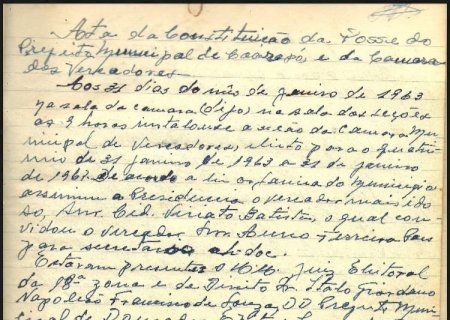 Ata da Constituição da Posse do
Prefeito Municipal de Caarapó, e da Camara
dos Vereadores
Aos 31 dias do mês de janeiro de 1963
na sala da camara (digo) na sala das seções
as 9 horas instalou-se a seção da Camara Mu-
nicipal de Vereadores, eleito para o quatri-
nio de 31 janeiro de 1963 a 31 de janeiro
de 1967 de acordo a lei organica do Municipio
assumiu a Presidencia o vereador mais ido-
so, Snr. Cid. Renato Batista, o qual con-
vidou o vereador, Snr. Ferreira
para secretario
Estavam presentes o M.M. Juiz Eleitoral
da 18ª zona e de Direito Dr. Italo Giordano
Napoleão Francisco de Souza, DD Prefeito Muni-
cipal de Dourados